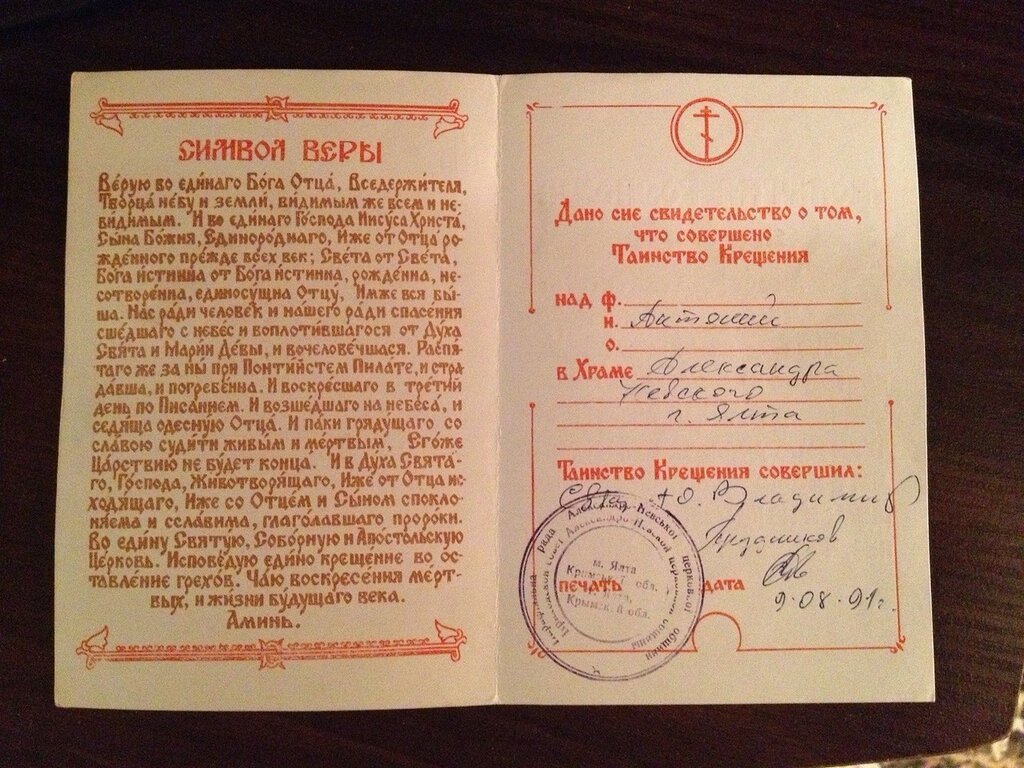 СИМВОЛ ВЕРЫ
Верую во единаго Бога Отца, Вседержителя,
Творца небу и земли, видимым же всем и не-
видимым. И во единаго Господа Иисуса Христа,
Сына Божия, Единороднаго, Иже от Отца ро-
жденного прежде всех век; Света от Света,
Бога истинна от Бога истинна, рожденна, не-
сотворенна, единосущна Отцу, Имже вся бы-
ша. Нас ради человек и нашего ради спасения
сшедшаго с небес и воплотившагося от Духа
Свята и Марии Девы, и вочеловечшася. Распя-
таго же за ны при Понтийстем Пилате, и стра-
давша, и погребенна. И воскресшаго в третий
день по Писанием. И возшедшаго на небеса, и
седяща одесную Отца. И паки грядущаго со
славою судити живым и мертвым, Егоже
Царствию не будет конца. И в Духа Свята-
го, Господа, Животворящаго, Иже от Отца ис-
ходящаго, Иже со Отцем и Сыном спокло-
няема и сславима, глаголавшаго пророки.
Во едину Святую, Соборную и Апостольскую
Церковь. Исповедую едино крещение во ос-
тавление грехов. Чаю воскресения мерт-
вых, и жизни будущаго века.
Аминь.
Дано сие свидетельство о том,
что совершено
Таинство Крещения
над ф.
и. Антоний
о.
в Храме Александра
Невского
г. Ялта
Таинство Крещения совершил:
Владимир
печать дата
9.08.91г.
рада Александро-Невської церковної общини
м. Ялта
Кримської обл.
Крымской обл.